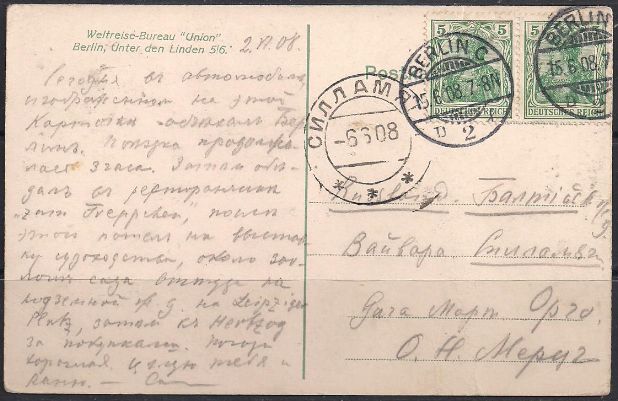 Weltreise-Bureau "Union"
Berlin, Unter den Linden 5/6.
2.VI.08.
Сегодня въ автомобилѣ,
изображенном на этой
карточкѣ объѣхалъ Бер
линъ. Поѣздка продолжа
лась 3 часа. Затѣм обѣ
далъ въ ресторанчикѣ
"zum Treppchen", послѣ
этого поѣхал на выстав
ку судоходства, около зоо
лог. сада оттуда на
подземной ж. д. на Leipziger
Platz, затѣм къ Hertzog
за покупками. Погода
хорошая. Цѣлую тебя и
Post
5 5
DEUTSCHES REICH DEUTSCHES REICH
BERLIN C
15.6.08.7-8N
2
BERLIN
15.6.08.7
СИЛЛАМЯ
-6 6 08
Russland. Балтійск
Вайвара
Дача Март Орго.
О. Н. Мерцъ